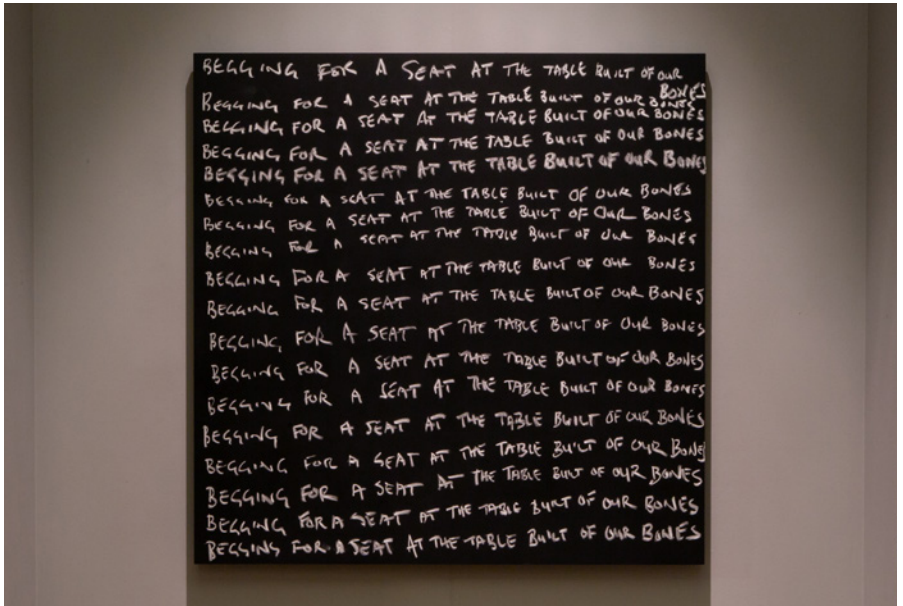 BEGGING FOR A SEAT AT THE TABLE BUILT OF OUR
BONES
BEGGING FOR A SEAT AT THE TABLE BUILT OF OUR BONES
BEGGING FOR A SEAT AT THE TABLE BUILT OF OUR BONES
BEGGING FOR A SEAT AT THE TABLE BUILT OF OUR BONES
BEGGING FOR A SEAT AT THE TABLE BUILT OF OUR BONES
BEGGING FOR A SEAT AT THE TABLE BUILT OF OUR BONES
BEGGING FOR A SEAT AT THE TABLE BUILT OF OUR BONES
BEGGING FOR A SEAT AT THE TABLE BUILT OF OUR BONES
BEGGING FOR A SEAT AT THE TABLE BUILT OF OUR BONES
BEGGING FOR A SEAT AT THE TABLE BUILT OF OUR BONES
BEGGING FOR A SEAT AT THE TABLE BUILT OF OUR BONES
BEGGING FOR A SEAT AT THE TABLE BUILT OF OUR BONES
BEGGING FOR A SEAT AT THE TABLE BUILT OF OUR BONES
BEGGING FOR A SEAT AT THE TABLE BUILT OF OUR BONES
BEGGING FOR A SEAT AT THE TABLE BUILT OF OUR BONES
BEGGING FOR A SEAT AT THE TABLE BUILT OF OUR BONES
BEGGING FOR A SEAT AT THE TABLE BUILT OF OUR BONES
BEGGING FOR A SEAT AT THE TABLE BUILT OF OUR BONES